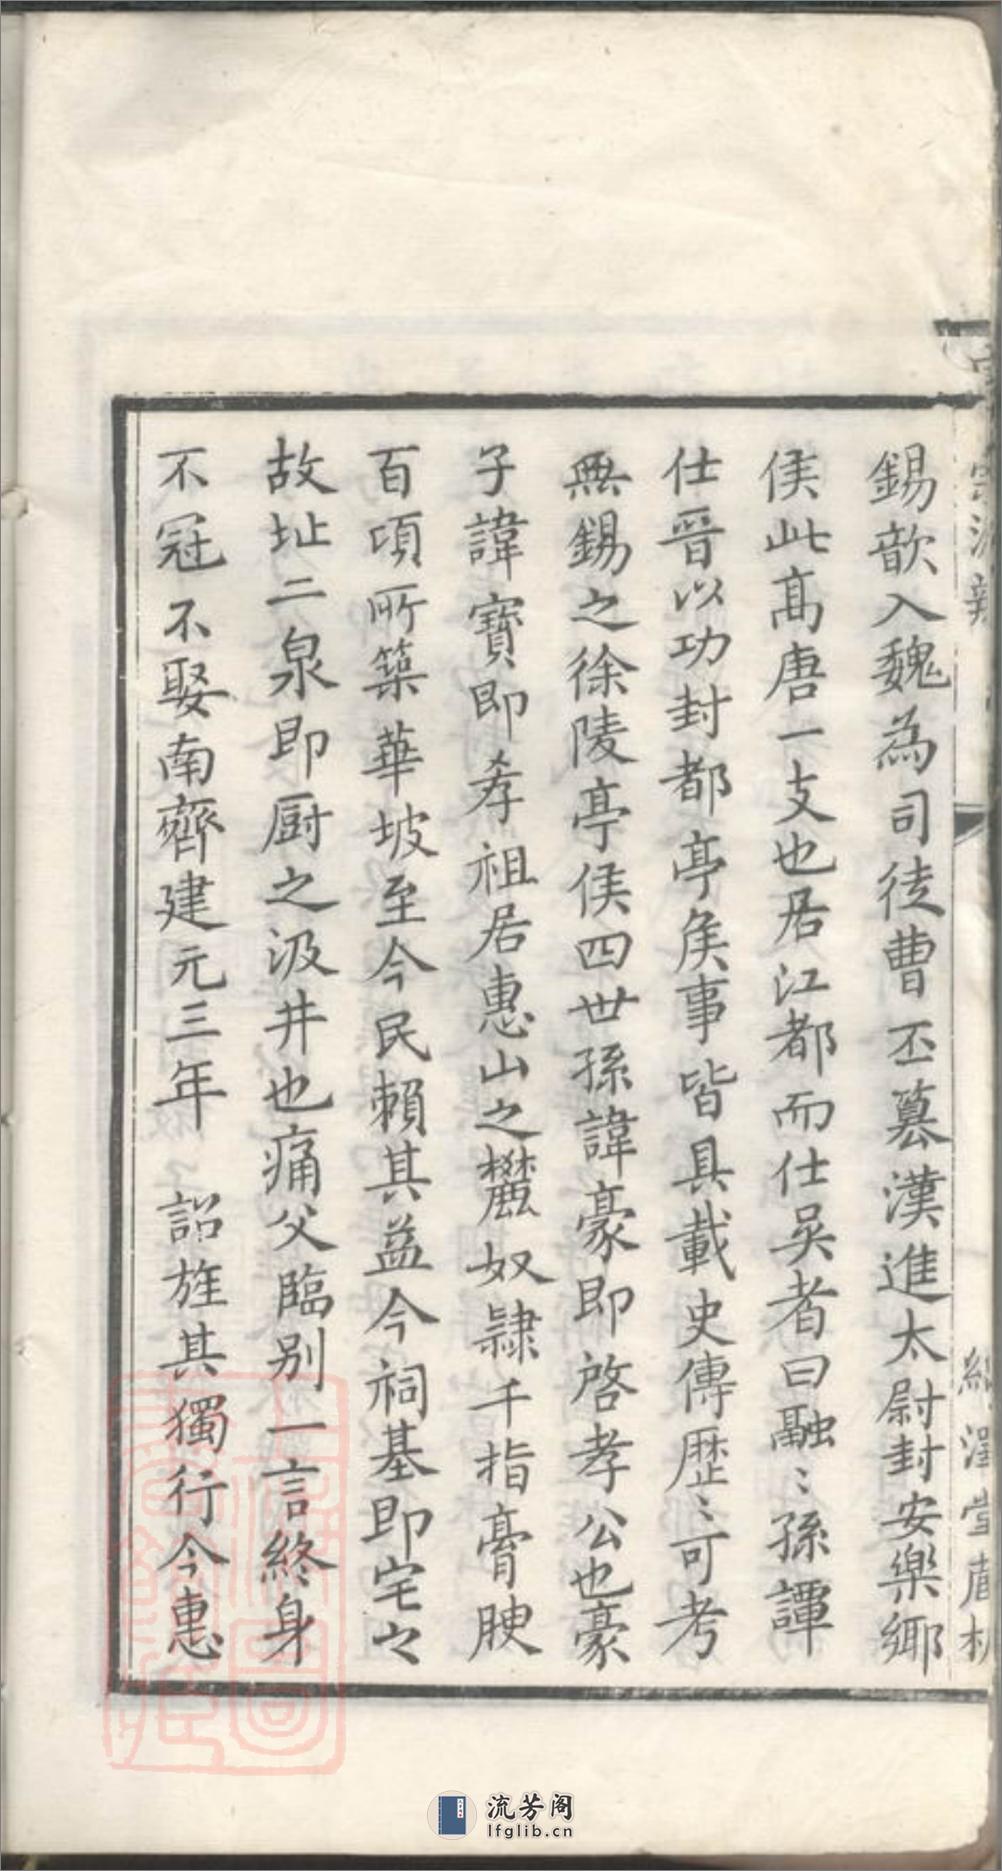 錫歆入魏為司徒曹丕篡漢進太尉封安樂鄉
侯此髙唐一支也居江都而仕吳者曰融〻孫譚
仕晉以功封都亭侯事皆具載史傳歷〻可考
無錫之徐陵亭侯四世孫諱豪即啓孝公也豪
子諱寳即孝祖居惠山之麓奴隷千指膏腴
百頃所築華坡至今民賴其益今祠基即宅之
故址二泉即厨之汲井也痛父臨别一言終身
不冠不娶南齊建元三年 詔旌其獨行今惠
流芳阁
lfglib.cn